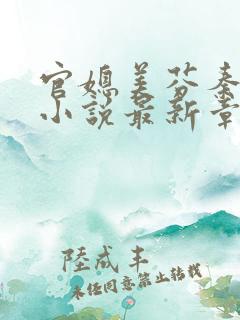 官媳美芬秦
小說最新章
陸咸丰
未经同意禁止转载